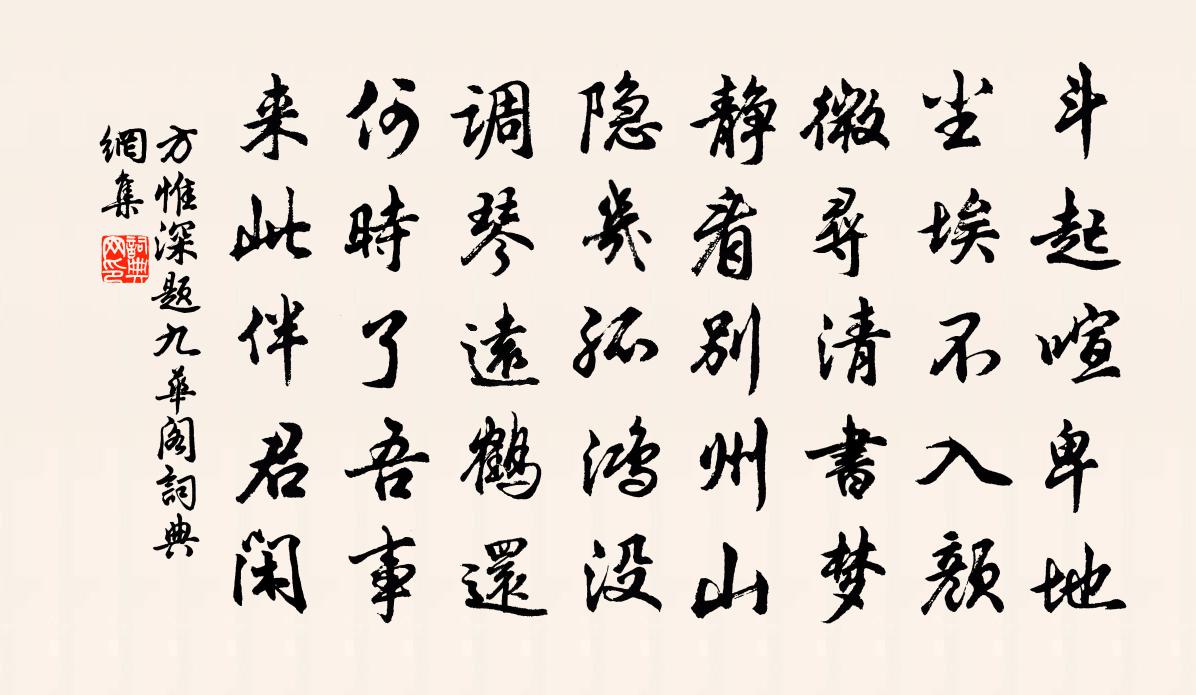 斗起喧卑地
尘埃不入颜
微寻清书梦
静看别州山
隐几孤鸿没
调琴远鹤還
何時了吾事
来此伴君闲
方惟深题九華阁詞典
網集
詞典网印